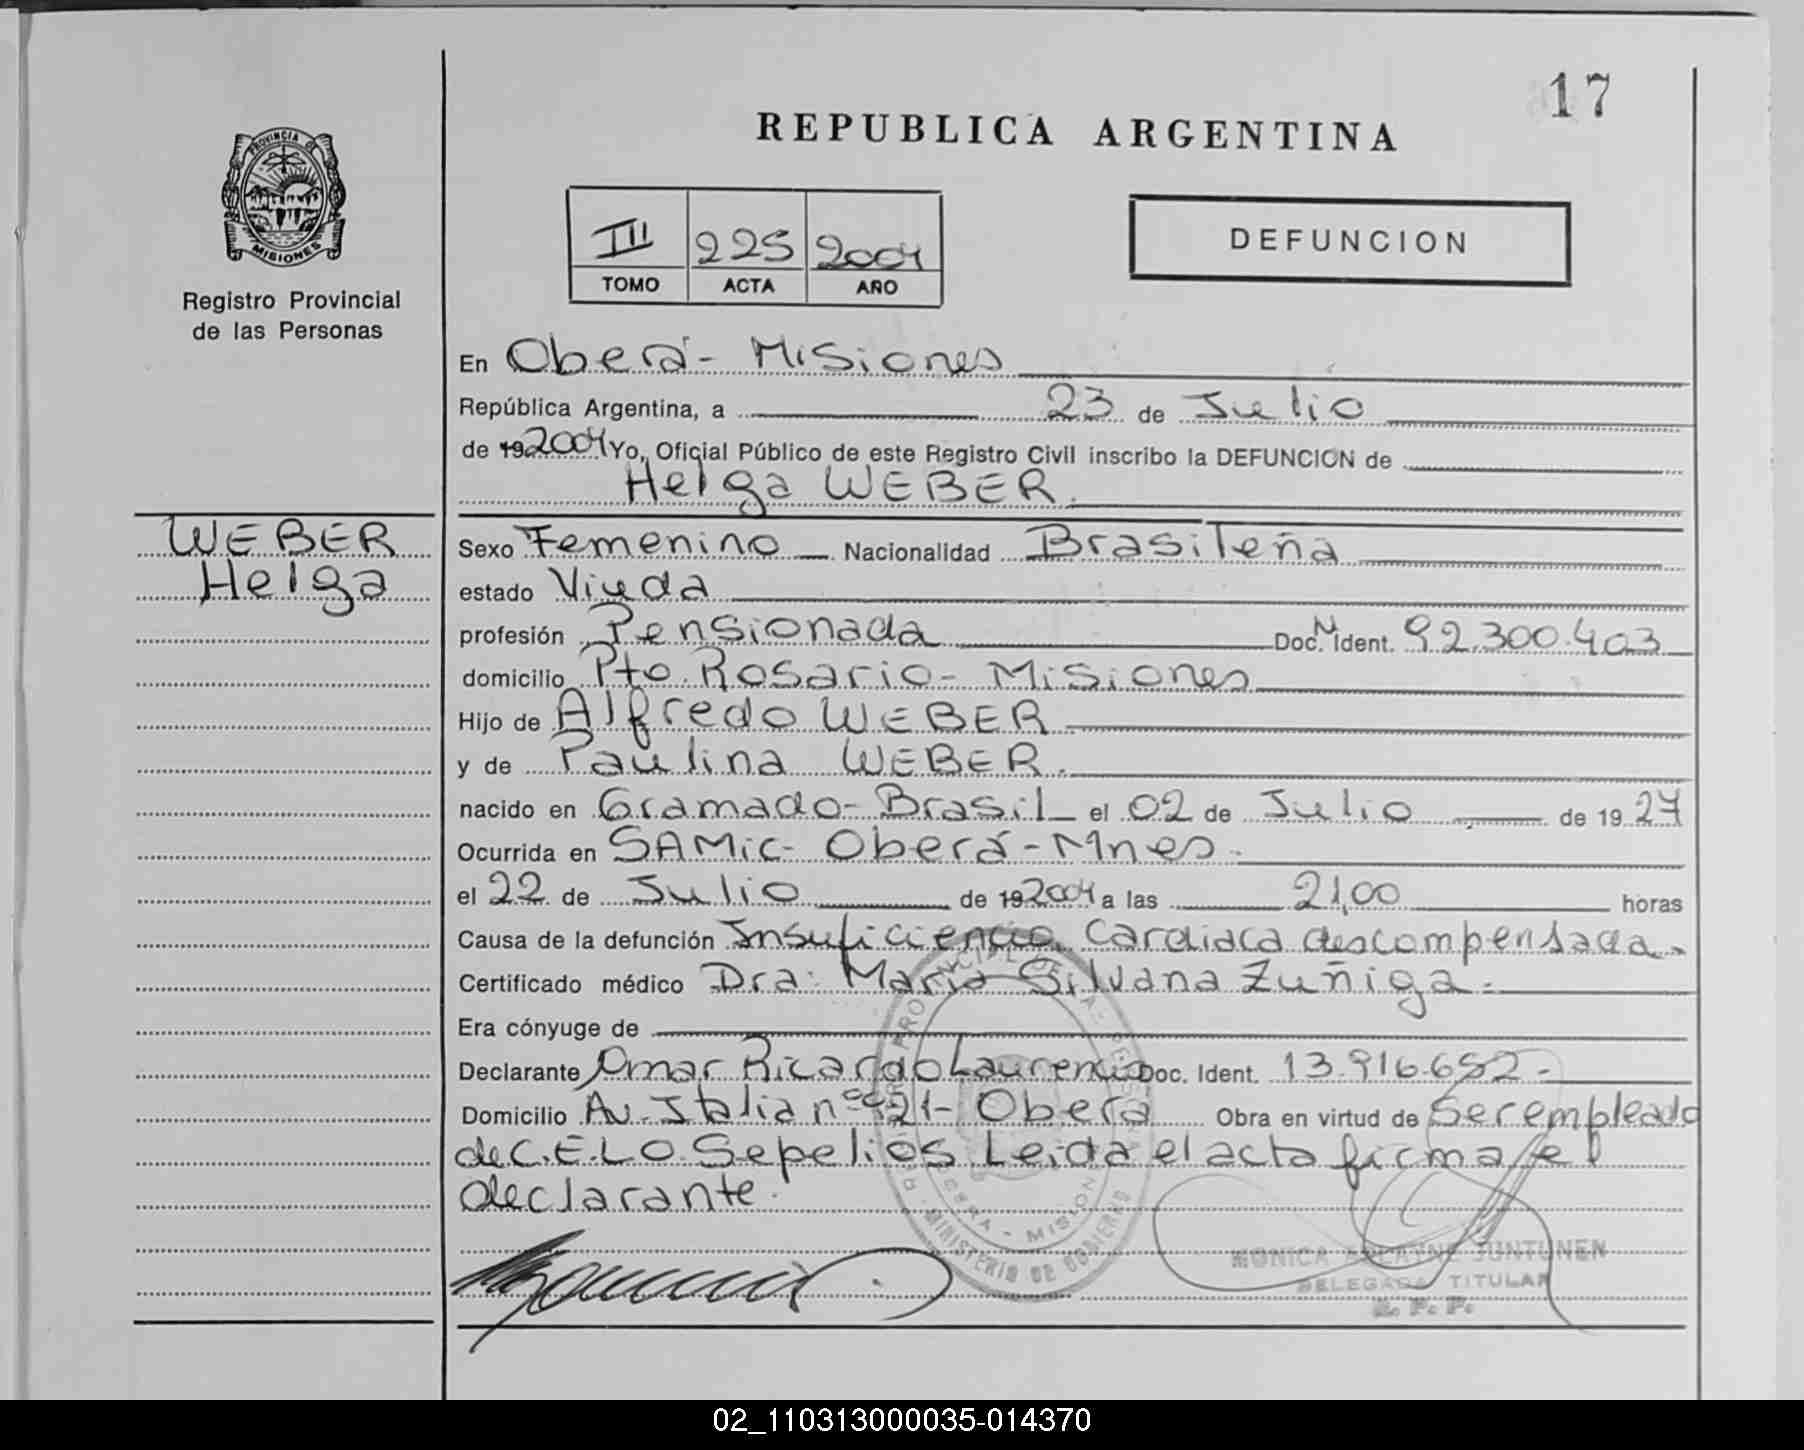 17
REPUBLICA ARGENTINA
PROVINCIA DE
MISIONES
Registro Provincial
de las Personas
III 225 2004
TOMO ACTA AÑO
DEFUNCION
En Oberá - Misiones
República Argentina, a 23 de Julio
de 19 2004 Yo, Oficial Público de este Registro Civil inscribo la DEFUNCION de
Helga WEBER.
WEBER
Helga
Sexo Femenino Nacionalidad Brasileña
estado Viuda
profesión Pensionada Doc. N Ident. 92.300.403
domicilio Pto. Rosario - Misiones
Hijo de Alfredo WEBER
y de Paulina WEBER.
nacido en Gramado - Brasil el 02 de Julio de 19 27
Ocurrida en SAMic - Oberá - Mnes.
el 22 de Julio de 19 2004 a las 21,00 horas
Causa de la defunción Insuficiencia Cardiaca descompensada.
Certificado médico Dra: Maria Silvana Zuñiga.
Era cónyuge de
Declarante Omar Ricardo Laurencio Doc. Ident. 13.916.652.-
Domicilio Av. Italia nº 421 - Oberá Obra en virtud de Ser empleado
de C.E.L.O. Sepelios. Leida el acta firma el
declarante.
MINISTERIO DE GOBIERNO
OBERA - MISIONES
MONICA JUNTUNEN
DELEGADA TITULAR
R. P. P.
02_110313000035-014370